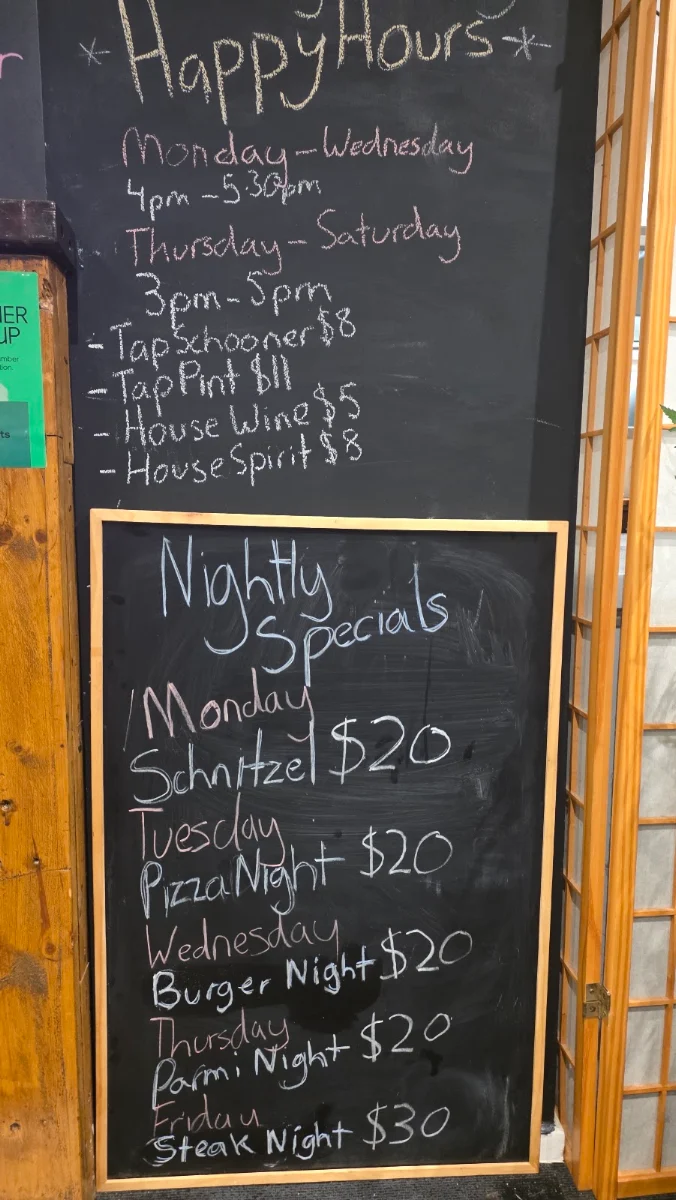 * Happy Hours *
Monday - Wednesday
4pm - 5:30pm
Thursday - Saturday
3pm - 5pm
- Tap Schooner $8
- Tap Pint $11
- House Wine $5
- House Spirit $8
Nightly
Specials
Monday
Schnitzel $20
Tuesday
Pizza Night $20
Wednesday
Burger Night $20
Thursday
Parmi Night $20
Friday
Steak Night $30